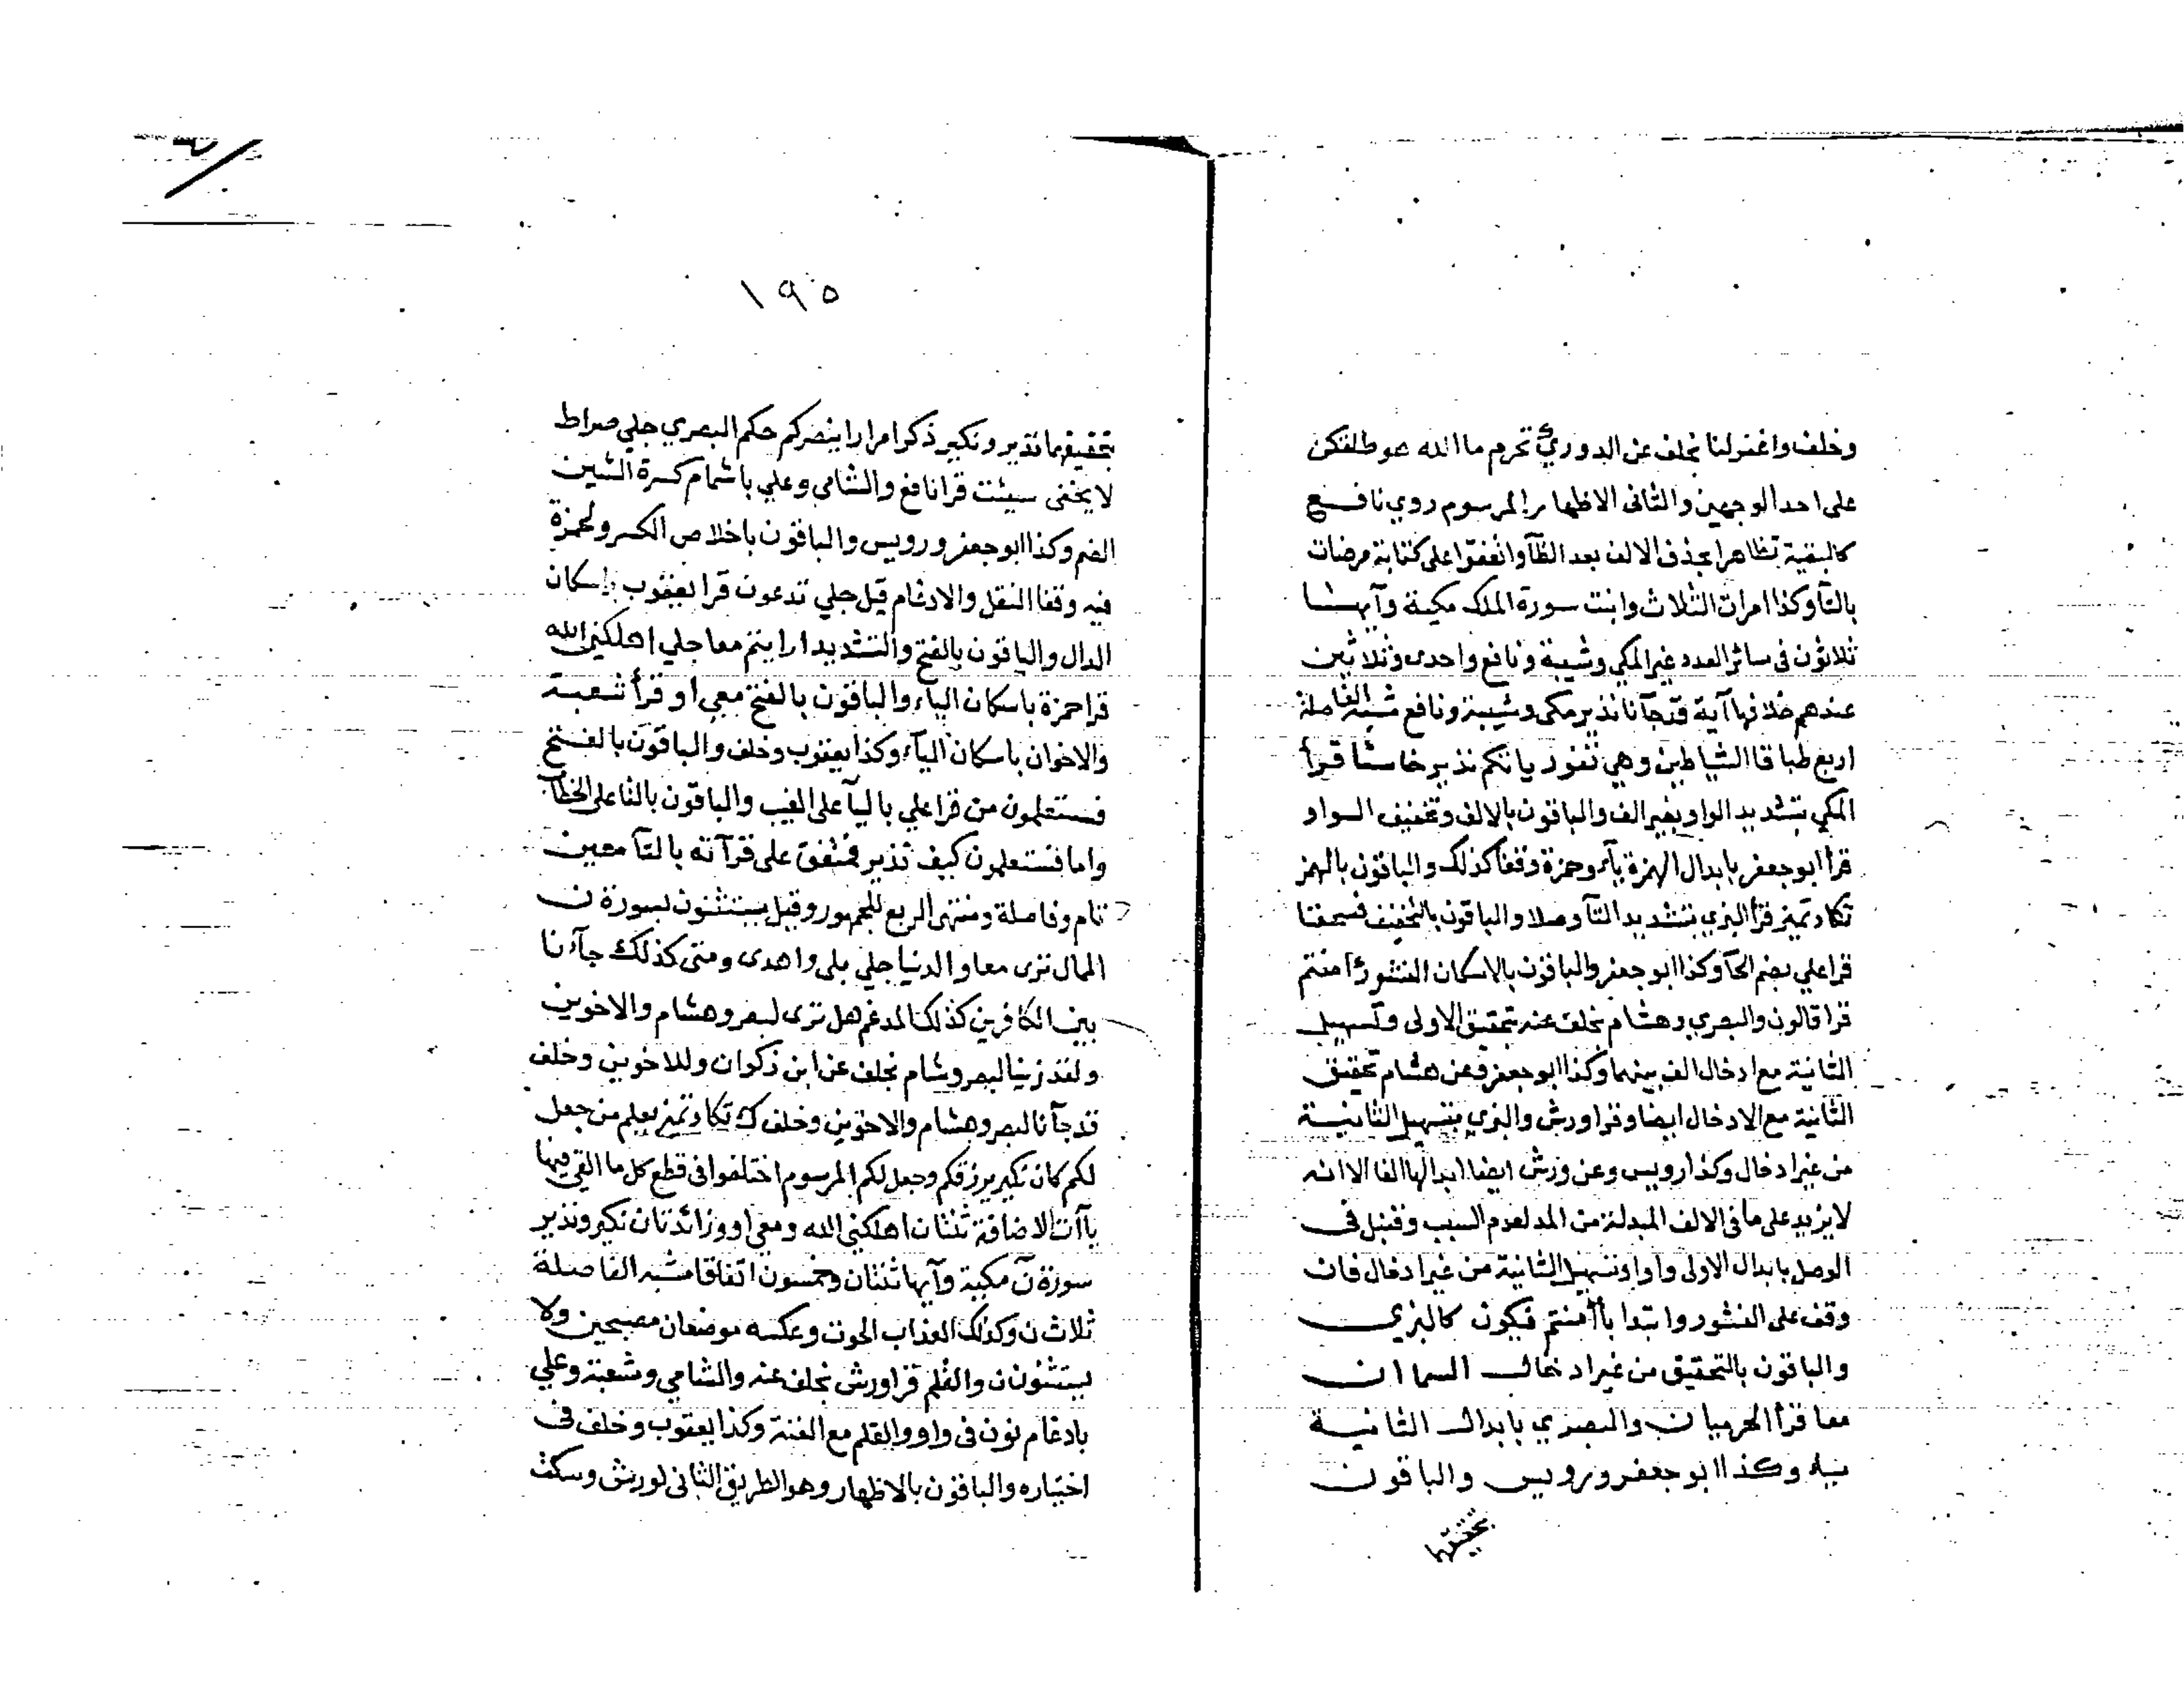 وخلف واغفر لنا بخلف عن الدوري تحرم ما الله هو طلقكن
على احد الوجهين والثاني الاظهار المرسوم روي نافع
كالبقية تظاهرا بحذف الالف بعد الظآ واتفقوا على كتابة مرضات
بالتآ وكذا امرات الثلاث وابنت سورة الملك مكية وآيها
ثلاثون في سائر العدد غير المكي وشيبة ونافع واحدى وثلاثين
عندهم خلافها آية قد جآنا نذير مكي وشيبة ونافع شبه الفاصلة
اربع طباقا الشياطين وهي تفور ياتكم نذير خاسئا قرأ
المكي بتشديد الواو بغير الف والباقون بالالف وتخفيف الواو
قرأ ابو جعفر بابدال الهمزة يآء وحمزة وقفا كذلك والباقون بالهمز
تكاد تميز قرأ البزي بتشديد التآ وصلا والباقون بالتخفيف فسحقا
قرا علي بضم الحآ وكذا ابو جعفر والباقون بالاسكان النشور ءامنتم
قرا قالون والبصري وهشام بخلف عنه بتحقيق الاولى وتسهيل
الثانية مع ادخال الف بينهما وكذا ابو جعفر وعن هشام تحقيق
الثانية مع الادخال ايضا وقرا ورش والبزي بتسهيل الثانية
من غير ادخال وكذا رويس وعن ورش ايضا ابدالها الفا الا انه
لا يزيد على ما في الالف المبدلة من المد لعدم السبب وقنبل في
الوصل بابدال الاولى واوا وتسهيل الثانية من غير ادخال فان
وقف على النشور وابتدا بأامنتم فيكون كالبزي
والباقون بالتحقيق من غير ادخال السما ان
معا قرأ الحرميان والبصري بابدال الثانية
ياء وكذا ابو جعفر ورويس والباقون
بتحقيقهما
١٩٥
بتحقيقهما نذير ونكير ذكرا مرارا ينصركم حكم البصري جلي صراط
لا يخفى سيئت قرا نافع والشامي وعلي باشمام كسرة السين
الضم وكذا ابو جعفر ورويس والباقون باخلاص الكسر ولحمزة
فيه وقفا النقل والادغام قيل جلي تدعون قرا يعقوب باسكان
الدال والباقون بالفتح والتشديد ارايتم معا جلي اهلكني الله
قرا حمزة باسكان الياء والباقون بالفتح معي او قرأ شعبة
والاخوان باسكان اليآء وكذا يعقوب وخلف والباقون بالفتح
فستعلمون من قرا علي باليآ على الغيب والباقون بالتا على الخطاب
واما فستعلمون كيف نذير فمتفق على قرآته بالتآ معين
تام وفاصلة ومنتهى الربع للجمهور وقيل يستثنون لسورة ن
الممال ترى معا والدنيا جلي بلى واهدى ومتى كذلك جآءنا
بين الكافرين كذلك المدغم هل ترى لبصر وهشام والاخوين
ولقد زينا لبصر وشام بخلف عن ابن ذكوان وللاخوين وخلف
قد جآنا لبصر وهشام والاخوين وخلف ك تكاد تميز يعلم من جعل
لكم كان نكير يرزقكم وجعل لكم المرسوم اختلفوا في قطع كل ما القي فيها
يآآت الاضافة ثنتان اهلكني الله ومعي او وزائدتان نكير ونذير
سورة نٓ مكية وآيها ثنتان وخمسون اتفاقا مشبه الفاصلة
ثلاث ن وكذلك العذاب الحوت وعكسه موضعان مصبحين ولا
يستثنون ن والقلم قرا ورش بخلف عنه والشامي وشعبة وعلي
بادغام نون في واو والقلم مع الغنة وكذا يعقوب وخلف في
اختياره والباقون بالاظهار وهو الطريق الثاني لورش وسكت